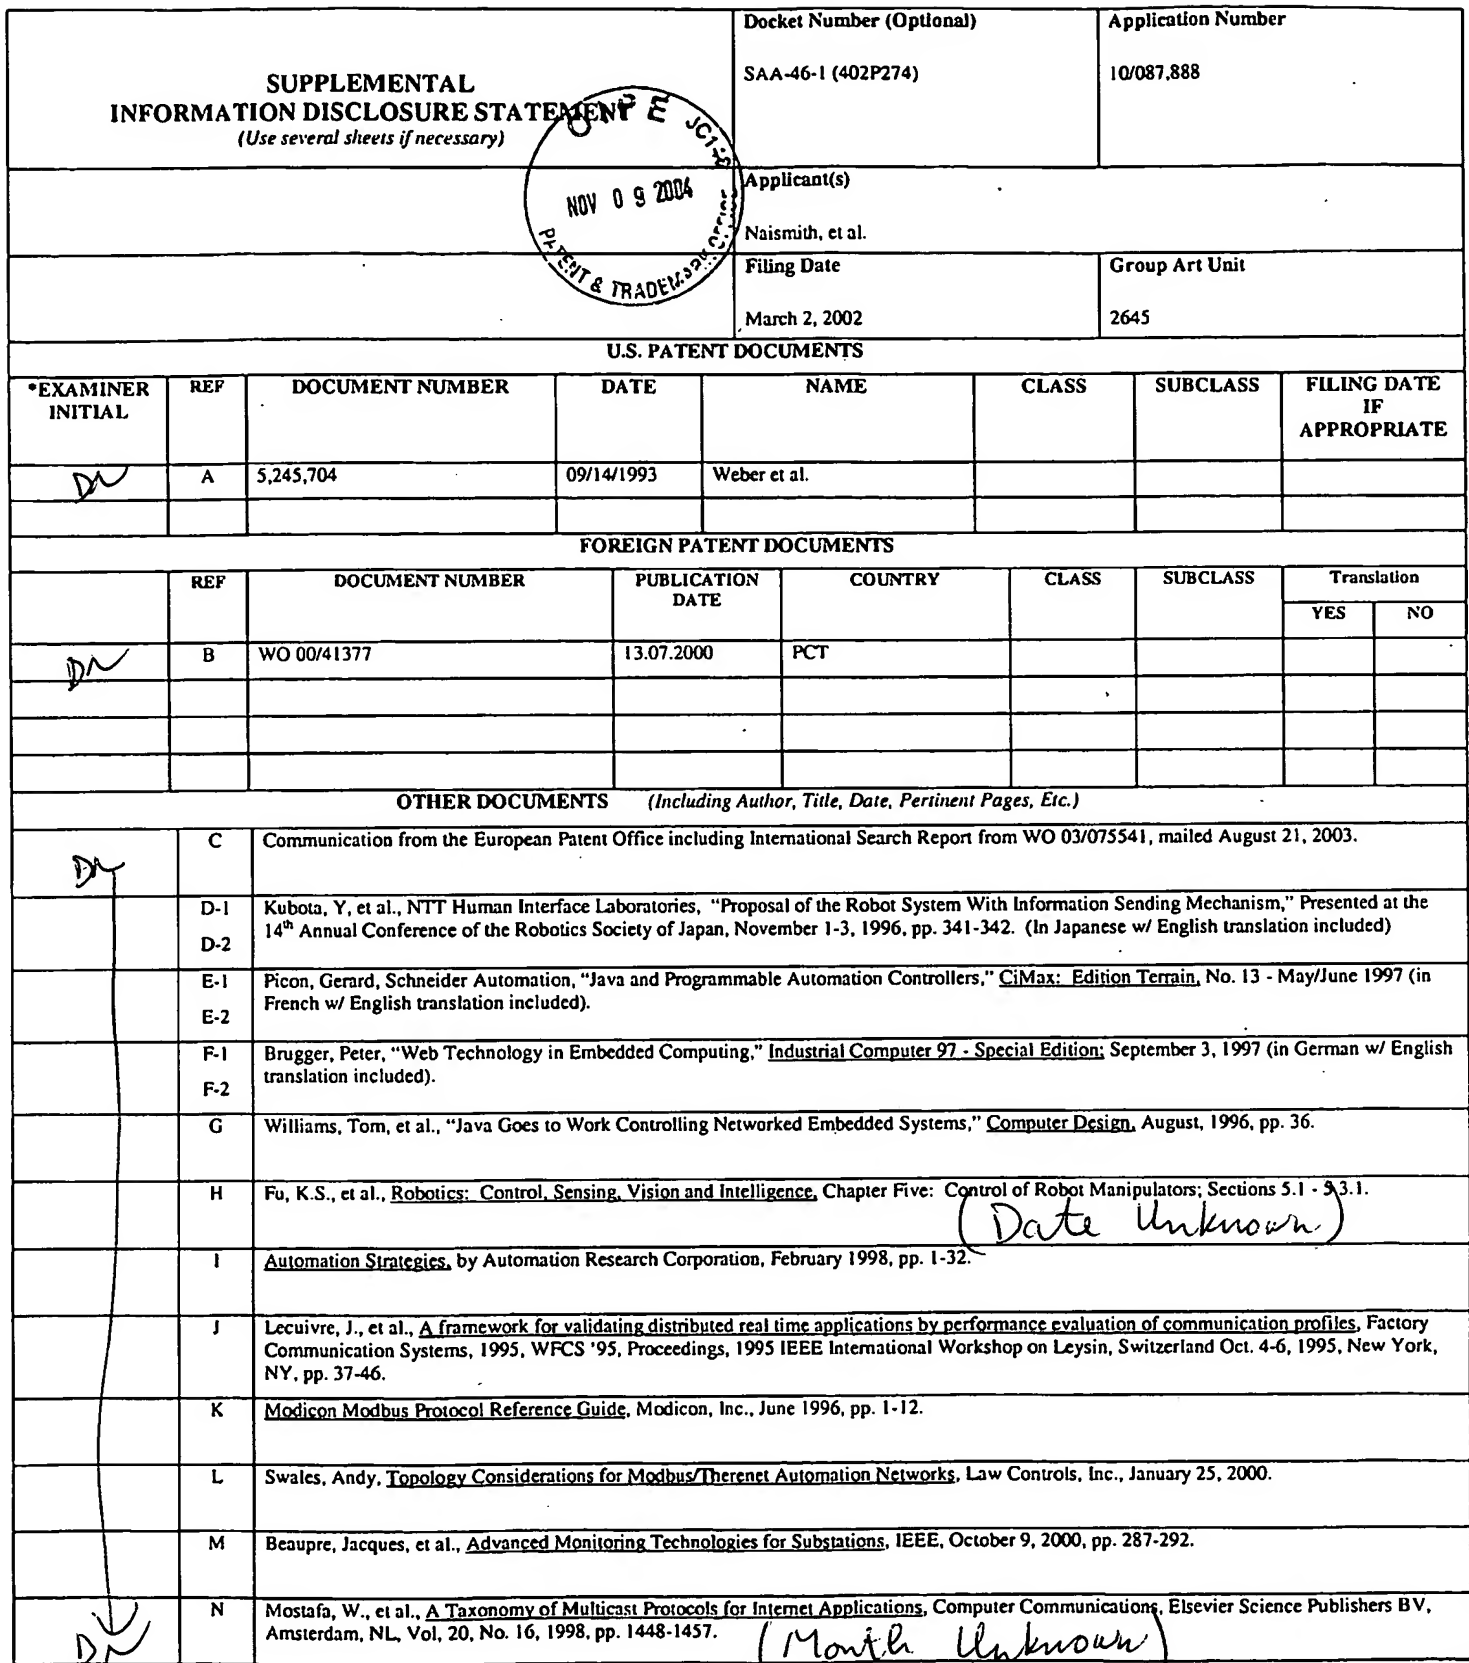 Docket Number (Optional)
Application Number
SUPPLEMENTAL
INFORMATION DISCLOSURE STATEMENT
(Use several sheets if necessary)
SAA-46-1 (402P274)
10/087,888
OIPE JC1
NOV 0 9 2004
PATENT & TRADEMARK OFFICE
Applicant(s)
Naismith, et al.
Filing Date
Group Art Unit
March 2, 2002
2645
U.S. PATENT DOCUMENTS
*EXAMINER INITIAL REF DOCUMENT NUMBER DATE NAME CLASS SUBCLASS FILING DATE IF APPROPRIATE
DN A 5,245,704 09/14/1993 Weber et al.
FOREIGN PATENT DOCUMENTS
REF DOCUMENT NUMBER PUBLICATION DATE COUNTRY CLASS SUBCLASS Translation
YES NO
DN B WO 00/41377 13.07.2000 PCT
OTHER DOCUMENTS (Including Author, Title, Date, Pertinent Pages, Etc.)
DN C Communication from the European Patent Office including International Search Report from WO 03/075541, mailed August 21, 2003.
D-1 Kubota, Y, et al., NTT Human Interface Laboratories, "Proposal of the Robot System With Information Sending Mechanism," Presented at the
D-2 14th Annual Conference of the Robotics Society of Japan, November 1-3, 1996, pp. 341-342. (In Japanese w/ English translation included)
E-1 Picon, Gerard, Schneider Automation, "Java and Programmable Automation Controllers," CiMax: Edition Terrain, No. 13 - May/June 1997 (in
E-2 French w/ English translation included).
F-1 Brugger, Peter, "Web Technology in Embedded Computing," Industrial Computer 97 - Special Edition; September 3, 1997 (in German w/ English
F-2 translation included).
G Williams, Tom, et al., "Java Goes to Work Controlling Networked Embedded Systems," Computer Design, August, 1996, pp. 36.
H Fu, K.S., et al., Robotics: Control, Sensing, Vision and Intelligence, Chapter Five: Control of Robot Manipulators; Sections 5.1 - 5.3.1.
(Date Unknown)
I Automation Strategies, by Automation Research Corporation, February 1998, pp. 1-32.
J Lecuivre, J., et al., A framework for validating distributed real time applications by performance evaluation of communication profiles, Factory
Communication Systems, 1995, WFCS '95, Proceedings, 1995 IEEE International Workshop on Leysin, Switzerland Oct. 4-6, 1995, New York,
NY, pp. 37-46.
K Modicon Modbus Protocol Reference Guide, Modicon, Inc., June 1996, pp. 1-12.
L Swales, Andy, Topology Considerations for Modbus/Therenet Automation Networks, Law Controls, Inc., January 25, 2000.
M Beaupre, Jacques, et al., Advanced Monitoring Technologies for Substations, IEEE, October 9, 2000, pp. 287-292.
N Mostafa, W., et al., A Taxonomy of Multicast Protocols for Internet Applications, Computer Communications, Elsevier Science Publishers BV,
DN Amsterdam, NL, Vol, 20, No. 16, 1998, pp. 1448-1457. (Month Unknown)